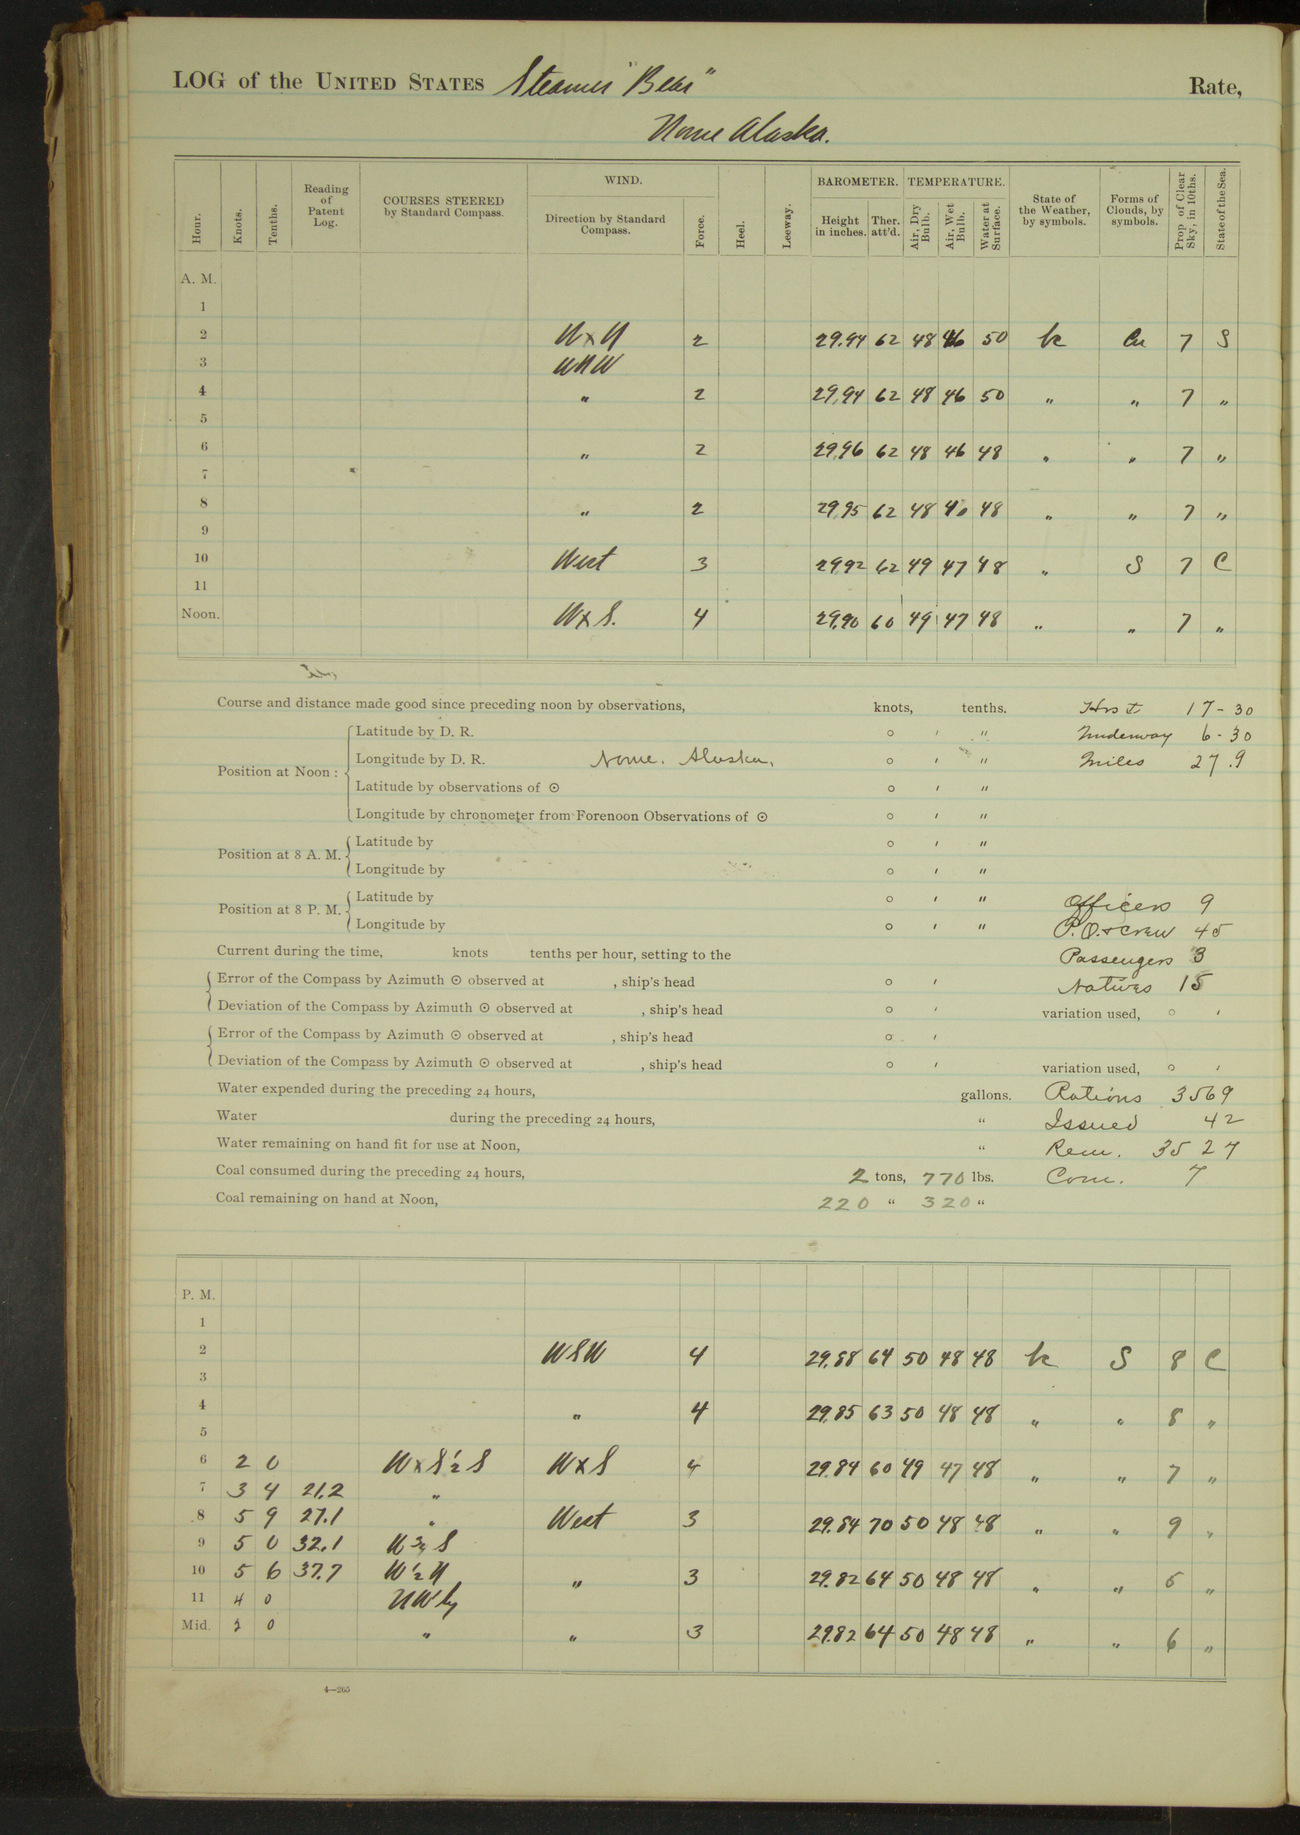 LOG of the UNITED STATES Steamer "Bear" Rate,
Nome Alaska.
Hour. Knots. Tenths. Reading of Patent Log. COURSES STEERED by Standard Compass. WIND. Direction by Standard Compass. Force. Heel. Leeway. BAROMETER. Height in inches. Ther. att'd. TEMPERATURE. Air, Dry Bulb. Air, Wet Bulb. Water at Surface. State of the Weather, by symbols. Forms of Clouds, by symbols. Prop. of Clear Sky, in 10ths. State of the Sea.
A. M.
1
2 WxN 2 29.94 62 48 46 50 bc Cu 7 S
3 WNW
4 " 2 29.94 62 48 46 50 " " 7 "
5
6 " 2 29.96 62 48 46 48 " " 7 "
7
8 " 2 29.95 62 48 48 " " 7 "
9
10 West 3 29.92 62 49 47 48 " S 7 C
11
Noon. WxS. 4 29.90 60 49 47 48 " " 7 "
Course and distance made good since preceding noon by observations, knots, tenths. 17-30
Latitude by D. R. ° ' " Underway 6-30
Position at Noon: Longitude by D. R. Nome. Alaska. ° ' " Miles 27.9
Latitude by observations of ☉ ° ' "
Longitude by chronometer from Forenoon Observations of ☉ ° ' "
Position at 8 A. M. Latitude by ° ' "
Longitude by ° ' "
Position at 8 P. M. Latitude by ° ' " Officers 9
Longitude by ° ' " P.O. & Crew 45
Current during the time, knots tenths per hour, setting to the Passengers 3
Error of the Compass by Azimuth ☉ observed at , ship's head ° ' Natives 15
Deviation of the Compass by Azimuth ☉ observed at , ship's head ° ' variation used, ° '
Error of the Compass by Azimuth ☉ observed at , ship's head ° '
Deviation of the Compass by Azimuth ☉ observed at , ship's head ° ' variation used, ° '
Water expended during the preceding 24 hours, gallons. Rations 3569
Water during the preceding 24 hours, " Issued 42
Water remaining on hand fit for use at Noon, " Rem. 3527
Coal consumed during the preceding 24 hours, 2 tons, 770 lbs. Com. 7
Coal remaining on hand at Noon, 220 " 320 "
P. M.
1
2 WSW 4 29.88 64 50 48 48 bc S 8 C
3
4 " 4 29.85 63 50 48 48 " " 8 "
5
6 2 0 WxS½S WxS 4 29.84 60 49 47 48 " " 7 "
7 3 4 21.2 "
8 5 9 27.1 " West 3 29.84 70 50 48 48 " " 9 "
9 5 0 32.1 W¾S
10 5 6 37.7 W½N " 3 29.82 64 50 48 48 " " "
11 4 0 NW'ly
Mid. 2 0 " " 3 29.82 64 50 48 48 " " 6 "
4—265